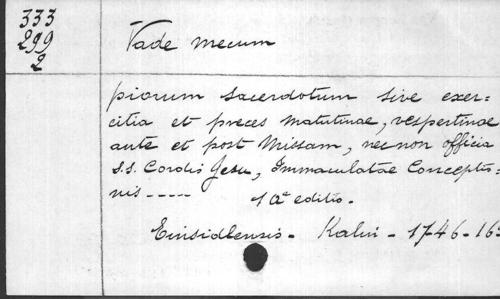 333
299
2
Vade mecum
piorum sacerdotum sive exer=
citia et preces matutinae, vespertinae
ante et post Missam, nec non officia
S.S. Cordis Jesu, Immaculatae Conceptio=
nis ---- 10ª editio.
Einsidlensis - Kalin - 1746 - 16